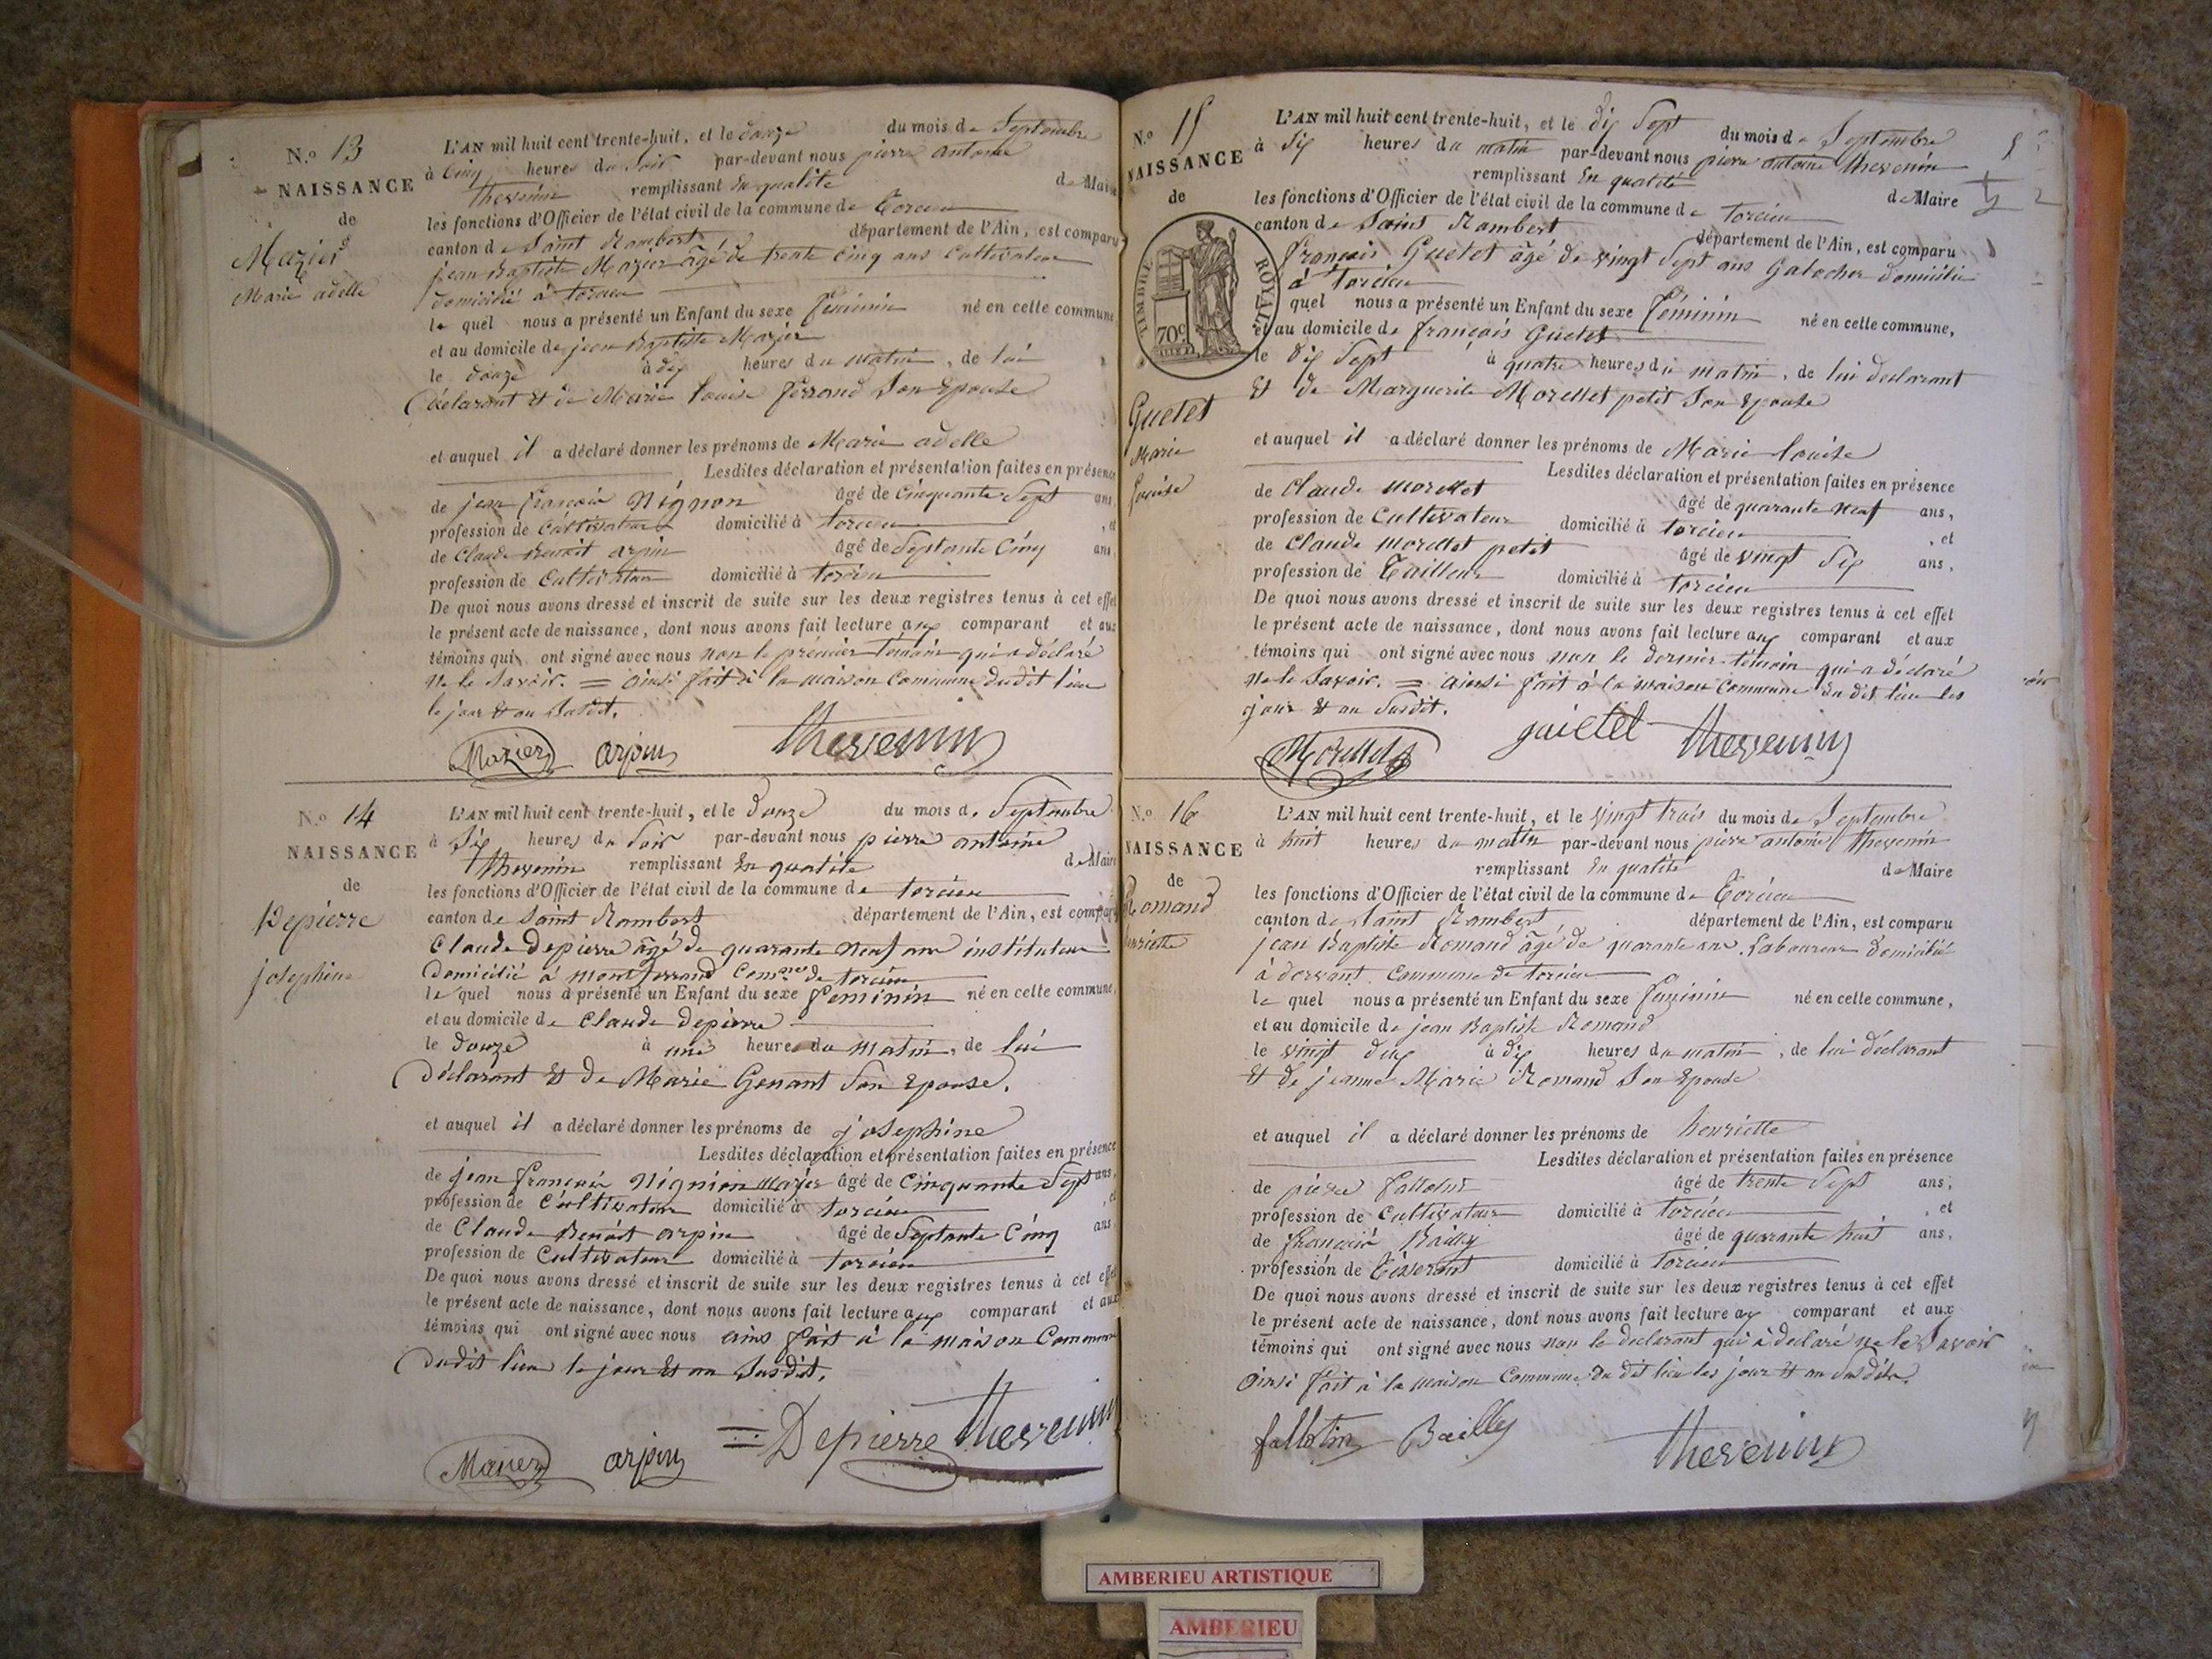 N.o 13
NAISSANCE
de
Mazier
Marie adelle
L'AN mil huit cent trente-huit, et le douze du mois de Septembre
à Cinq heures du Soir par-devant nous pierre antoine
thevenin remplissant En qualité de Maire
les fonctions d'Officier de l'état civil de la commune de Torcieu
canton de Saint Rambert département de l'Ain, est comparu
jean Baptiste Mazier âgé de trente cinq ans Cultivateur
domicilié à torcieu
le quel nous a présenté un Enfant du sexe féminin né en cette commune
et au domicile de jean Baptiste Mazier
le douze à dix heures du matin, de lui
Déclarant Et de Marie louise ferrand Son Epouse
et auquel il a déclaré donner les prénoms de Marie adelle
Lesdites déclaration et présentation faites en présence
de jean françois Nignon âgé de Cinquante Sept ans
profession de Cultivateur domicilié à torcieu, et
de Claude Benoit arpin âgé de Septante Cinq ans
profession de Cultivateur domicilié à torcieu
De quoi nous avons dressé et inscrit de suite sur les deux registres tenus à cet effet
le présent acte de naissance, dont nous avons fait lecture aux comparant et aux
témoins qui ont signé avec nous non le prémier témoin qui a déclaré
Ne le Savoir. = ainsi fait à la maison Commune dudit lieu
le jour Et an Susdit.
Mazier arpin thevenin
N.o 14
NAISSANCE
de
Depierre
josephine
L'AN mil huit cent trente-huit, et le douze du mois de Septembre
à Six heures du Soir par-devant nous pierre antoine
thevenin remplissant En qualité de Maire
les fonctions d'Officier de l'état civil de la commune de torcieu
canton de Saint Rambert département de l'Ain, est comparu
Claude Depierre âgé de quarante Neuf ans instituteur
Domicilié à montferrand Comne de torcieu
le quel nous a présenté un Enfant du sexe féminin né en cette commune,
et au domicile de Claude Depierre
le Douze à une heure du matin, de lui
Déclarant Et de Marie Genant Son Epouse.
et auquel il a déclaré donner les prénoms de josephine
Lesdites déclaration et présentation faites en présence
de jean françois Nignon mazier âgé de Cinquante Sept ans,
profession de Cultivateur domicilié à torcieu, et
de Claude Benoit arpin âgé de Septante Cinq ans
profession de Cultivateur domicilié à torcieu
De quoi nous avons dressé et inscrit de suite sur les deux registres tenus à cet effet
le présent acte de naissance, dont nous avons fait lecture aux comparant et aux
témoins qui ont signé avec nous ainsi fait à la maison Commune
Dudit lieu le jour Et an Susdit.
Mazier arpin = Depierre thevenin
N.o 15
NAISSANCE
de
TIMBRE ROYAL
70c.
Guetet
Marie
louise
L'AN mil huit cent trente-huit, et le dix Sept du mois de Septembre
à Six heures du matin par-devant nous pierre antoine thevenin
remplissant En qualité de Maire
les fonctions d'Officier de l'état civil de la commune de torcieu
canton de Saint Rambert département de l'Ain, est comparu
françois Guetet âgé de vingt Sept ans Galocher domicilié
à torcieu
quel nous a présenté un Enfant du sexe féminin né en cette commune,
et au domicile de françois Guetet
le dix Sept à quatre heures du matin, de lui déclarant
Et de Marguerite Morellet petit Son Epouse
et auquel il a déclaré donner les prénoms de Marie louise
Lesdites déclaration et présentation faites en présence
de Claude morellet âgé de quarante neuf ans,
profession de Cultivateur domicilié à torcieu, et
de Claude morellet petit âgé de vingt Six ans,
profession de Tailleur domicilié à torcieu
De quoi nous avons dressé et inscrit de suite sur les deux registres tenus à cet effet
le présent acte de naissance, dont nous avons fait lecture aux comparant et aux
témoins qui ont signé avec nous non le dernier témoin qui a déclaré
Ne le Savoir. = ainsi fait à la maison Commune du dit lieu les
jour Et an Susdit.
Morellet guietet thevenin
N.o 16
NAISSANCE
de
Romand
henriette
L'AN mil huit cent trente-huit, et le vingt trois du mois de Septembre
à huit heures du matin par-devant nous pierre antoine thevenin
remplissant En qualité de Maire
les fonctions d'Officier de l'état civil de la commune de Torcieu
canton de Saint Rambert département de l'Ain, est comparu
jean Baptiste Romand âgé de quarante ans Laboureur domicilié
à dorvant Commune de torcieu
le quel nous a présenté un Enfant du sexe féminin né en cette commune,
et au domicile de jean Baptiste Romand
le vingt deux à dix heures du matin, de lui déclarant
Et de jeanne Marie Romand Son Epouse
et auquel il a déclaré donner les prénoms de henriette
Lesdites déclaration et présentation faites en présence
de pierre fallotin âgé de trente Sept ans,
profession de Cultivateur domicilié à Torcieu, et
de françois Bailly âgé de quarante huit ans,
profession de Tisserant domicilié à Torcieu
De quoi nous avons dressé et inscrit de suite sur les deux registres tenus à cet effet
le présent acte de naissance, dont nous avons fait lecture aux comparant et aux
témoins qui ont signé avec nous non le declarant qui a déclaré ne le Savoir
ainsi fait à la maison Commune du dit lieu les jour Et an Susdits.
fallotin Bailly thevenin
AMBERIEU ARTISTIQUE
AMBERIEU